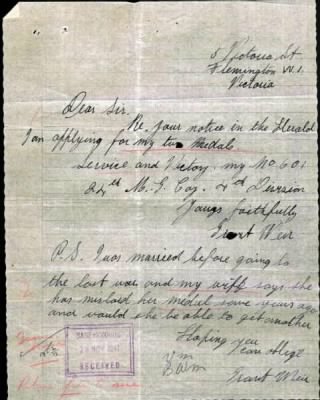 5 Victoria St
Flemington W.1.
Victoria
Dear Sir.
Re. Your notice in the Herald
I am applying for my two Medals
Service and Victory. my No 601
24th M. G. Coy. 4th Division
Yours faithfully
Frank Weir
P.S. I was married before going to
the last war and my wife says she
has mislaid her medal some years ago
and would she be able to get another
Hoping you
can oblige
Frank Weir
RECEIVED